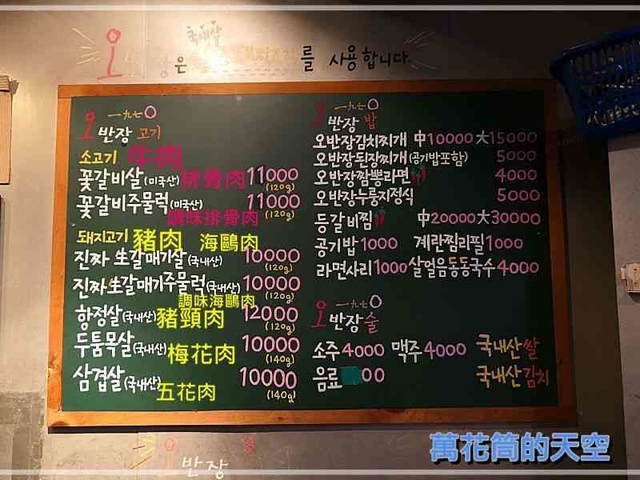 오반장은 국내산 를 사용합니다.
一九七O
오반장 고기
소고기 牛肉
꽃갈비살(미국산) 排骨肉 11000 (120g)
꽃갈비주물럭(미국산) 11000 (120g)
調味排骨肉
돼지고기 豬肉 海鷗肉
진짜 生갈매기살(국내산) 10000 (120g)
진짜 生갈매기주물럭(국내산) 10000 (120g)
調味海鷗肉
항정살(국내산) 豬頸肉 12000 (120g)
두툼목살(국내산) 梅花肉 10000 (140g)
삼겹살(국내산) 五花肉 10000 (140g)
一九七O
오반장 밥
오반장김치찌개 中10000 大15000
오반장된장찌개(공기밥포함) 5000
오반장짬뽕라면 4000
오반장누룽지정식 5000
등갈비찜 中20000 大30000
공기밥1000 계란찜리필1000
라면사리1000 살얼음동동국수4000
一九七O
오반장술
소주4000 맥주4000 국내산쌀
음료 00 국내산김치
오반장
萬花筒的天空